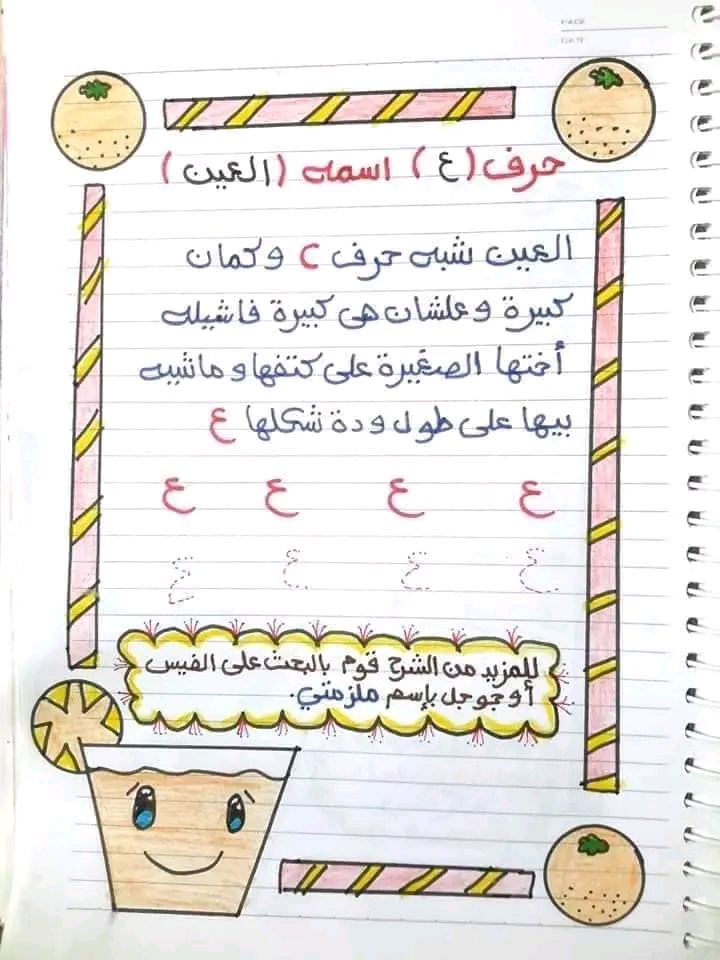 PAGE
DATE
حرف (ع) اسمه (العين)
العين تشبه حرف C وكمان
كبيرة وعلشان هى كبيرة فاشيله
أختها الصغيرة على كتفها وماشيه
بيها على طول ودة شكلها ع
ع ع ع ع
ع ع ع ع
للمزيد من الشرح قوم بالبحث على الفيس
أو جوجل بإسم ملزمتي.